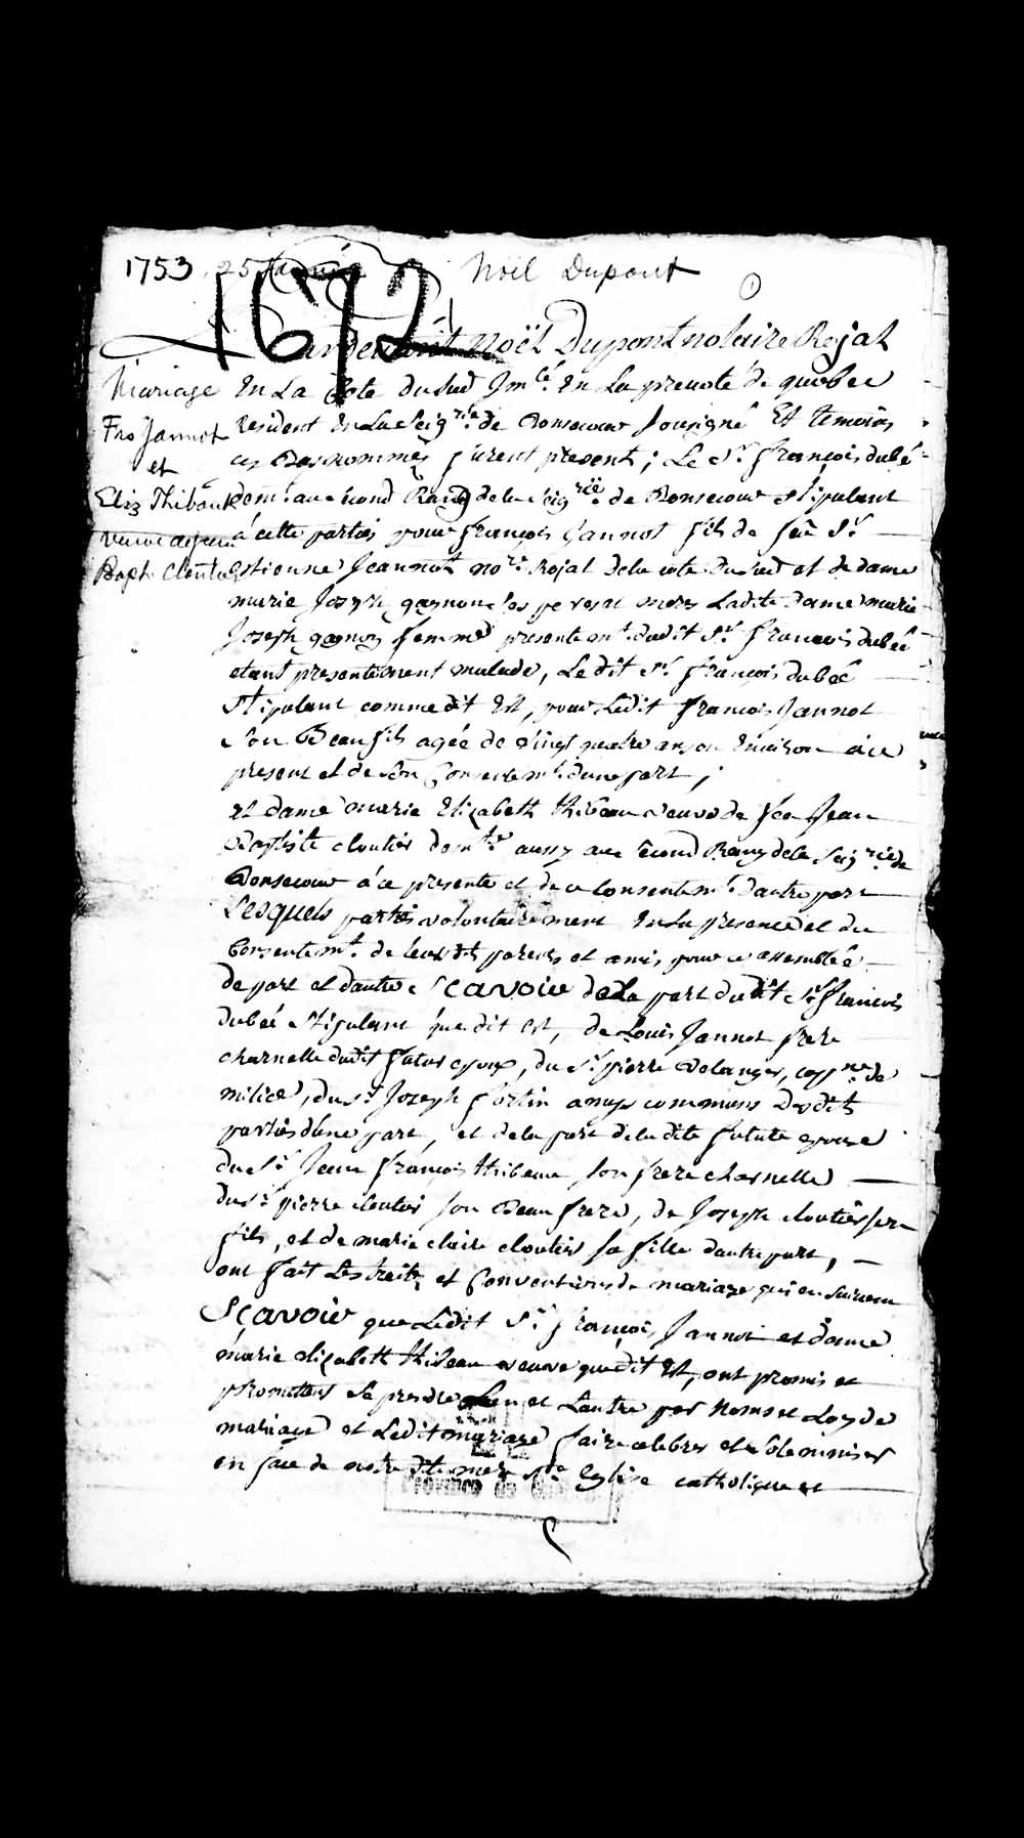 1753 25 Janvier Noël Dupont
1
1672
Pardevant Noël Dupont notaire Rojal
Mariage
Frs Jannot
et
Eliz Thibault
veuve
Bapt Cloutier
En La Cote du Sud Imlé. En La prevoté de quebec
Resident En La Seigrie de Bonsecour sousigné Et temoins
cy Bas nommés furent present; Le Sr françois dubé
demt au second Rang de la Seigrie de Bonsecour Stipulant
a cette partis pour françois Jannot fils de feü Sr
Estienne Jeannot nore Rojal de la cote du Sud et de dame
marie Joseph gagnon ses pere et mere Ladite dame marie
Joseph gagnon femme presentemt dudit Sr francois dubéé
etant presentement malade, Ledit Sr françois dubéé
Stipulant comme dit Est, pour Ledit francois Jannot
Son Beau fils agée de vingt quatre ans ou Environ a ce
present et de Son Consentemt d'une part;
et dame marie Elizabeth thibeau veuve de feu Jean
Baptiste cloutier demte aussy au second Rang de la Seigrie de
Bonsecour a ce presente et de ce Consentemt dautre part
Lesquels partis volontairement En la presence et du
Consentemt de leurs dt parens et amis pour ce assemblée
de part et dautre Scavoir de La part dudit Sr francois
dubéé Stipulant que dit est, de Louis Jannot frere
charnelle dudit futur epoux, du Sr pierre Belanger, capne de
milice, du Sr Joseph fortin amys communs Desdits
partis d'une part, et de la part de la dite future epouse
du Sr Jean françois thibeau son frere charnelle
du Sr pierre cloutier son Beau frere, de Joseph cloutier son
fils, et de marie claire cloutier sa fille dautre part,
ont fait Les traité et Conventions de mariage qui en suivent
Sçavoir que Ledit Sr françois Jannot et dame
marie elizabeth thibeau veuve que dit Est, ont promis et
promettent Se prendre Lun et Lautre par Nom et Loy de
mariage et Ledit mariage faire celebrer et Solemniser
en face de notre dite mere Ste Eglise catholique et